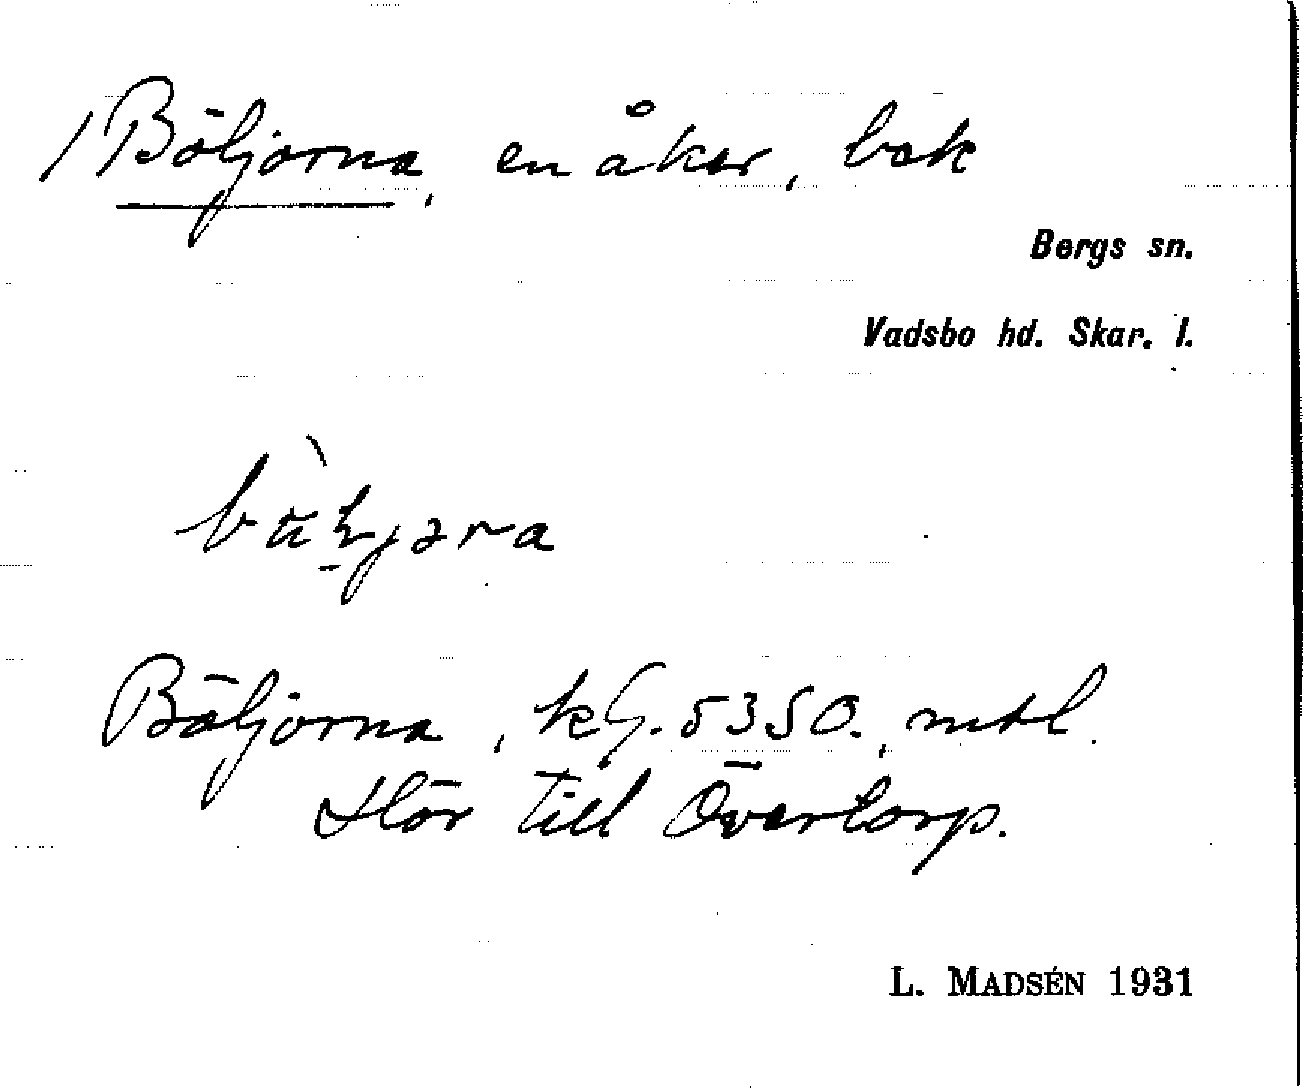 / Böljorna, en åker, bek
Bergs sn.
Vadsbo hd. Skar. l.
Böljorna, kG. 5350., mtl.
Hör till Övertorp.
L. MADSÉN 1931